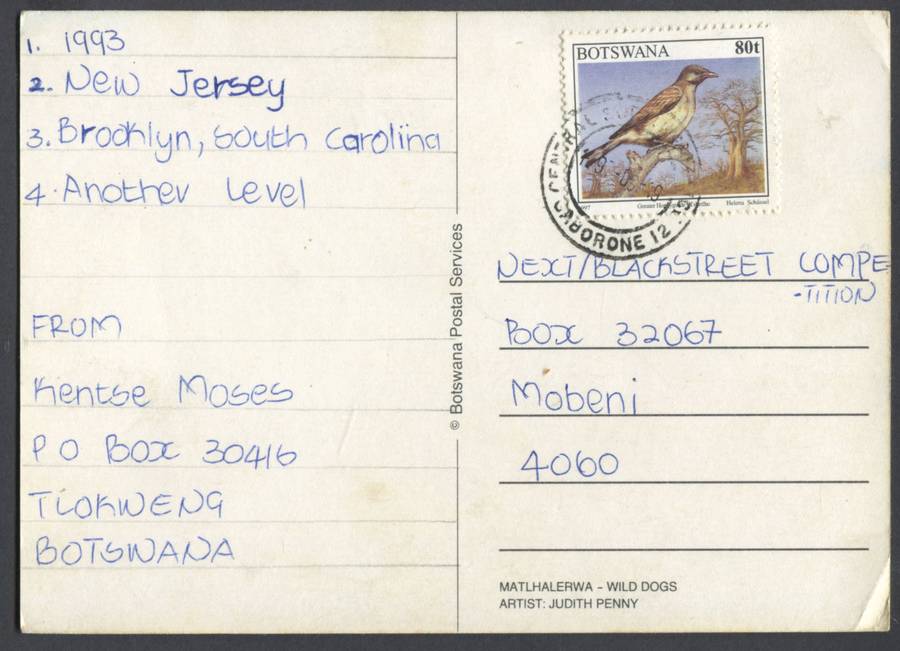 1. 1993
2. New Jersey
3. Brooklyn, South Carolina
4. Another Level
FROM
Kentse Moses
P O BOX 30416
TLOKWENG
BOTSWANA
© Botswana Postal Services
BOTSWANA 80t
1997 Greater Helena Schüssel
GABORONE 12
NEXT/BLACKSTREET COMPE
-TITION
BOX 32067
Mobeni
4060
MATLHALERWA – WILD DOGS
ARTIST: JUDITH PENNY